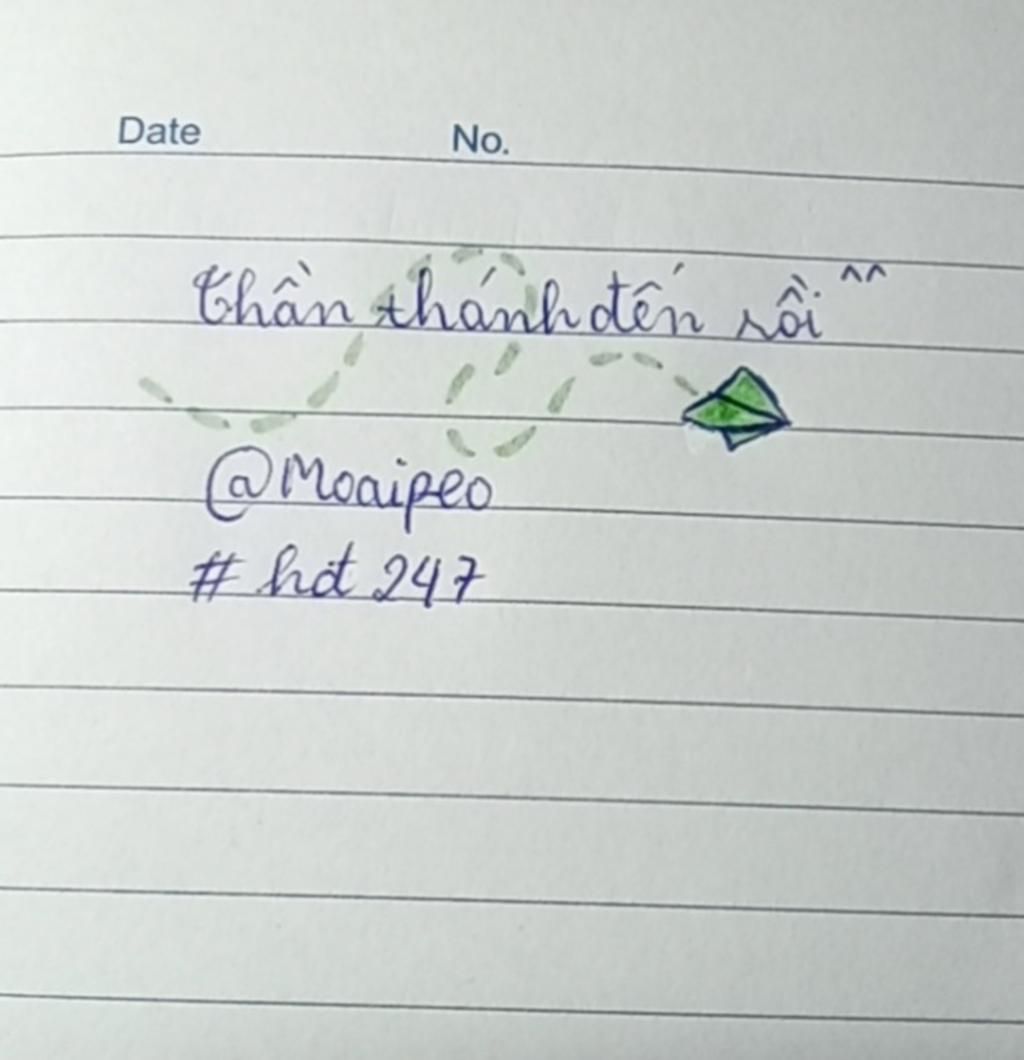 Date No.
Thần thánh đến rồi ^^
@Moaipeo
# hdt 247